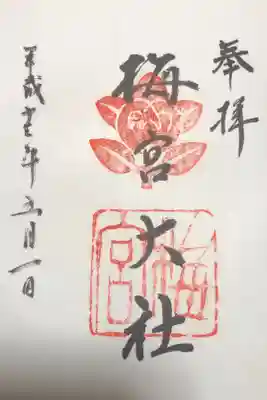 奉拝
梅宮大社
平成廿一年五月一日
梅宮